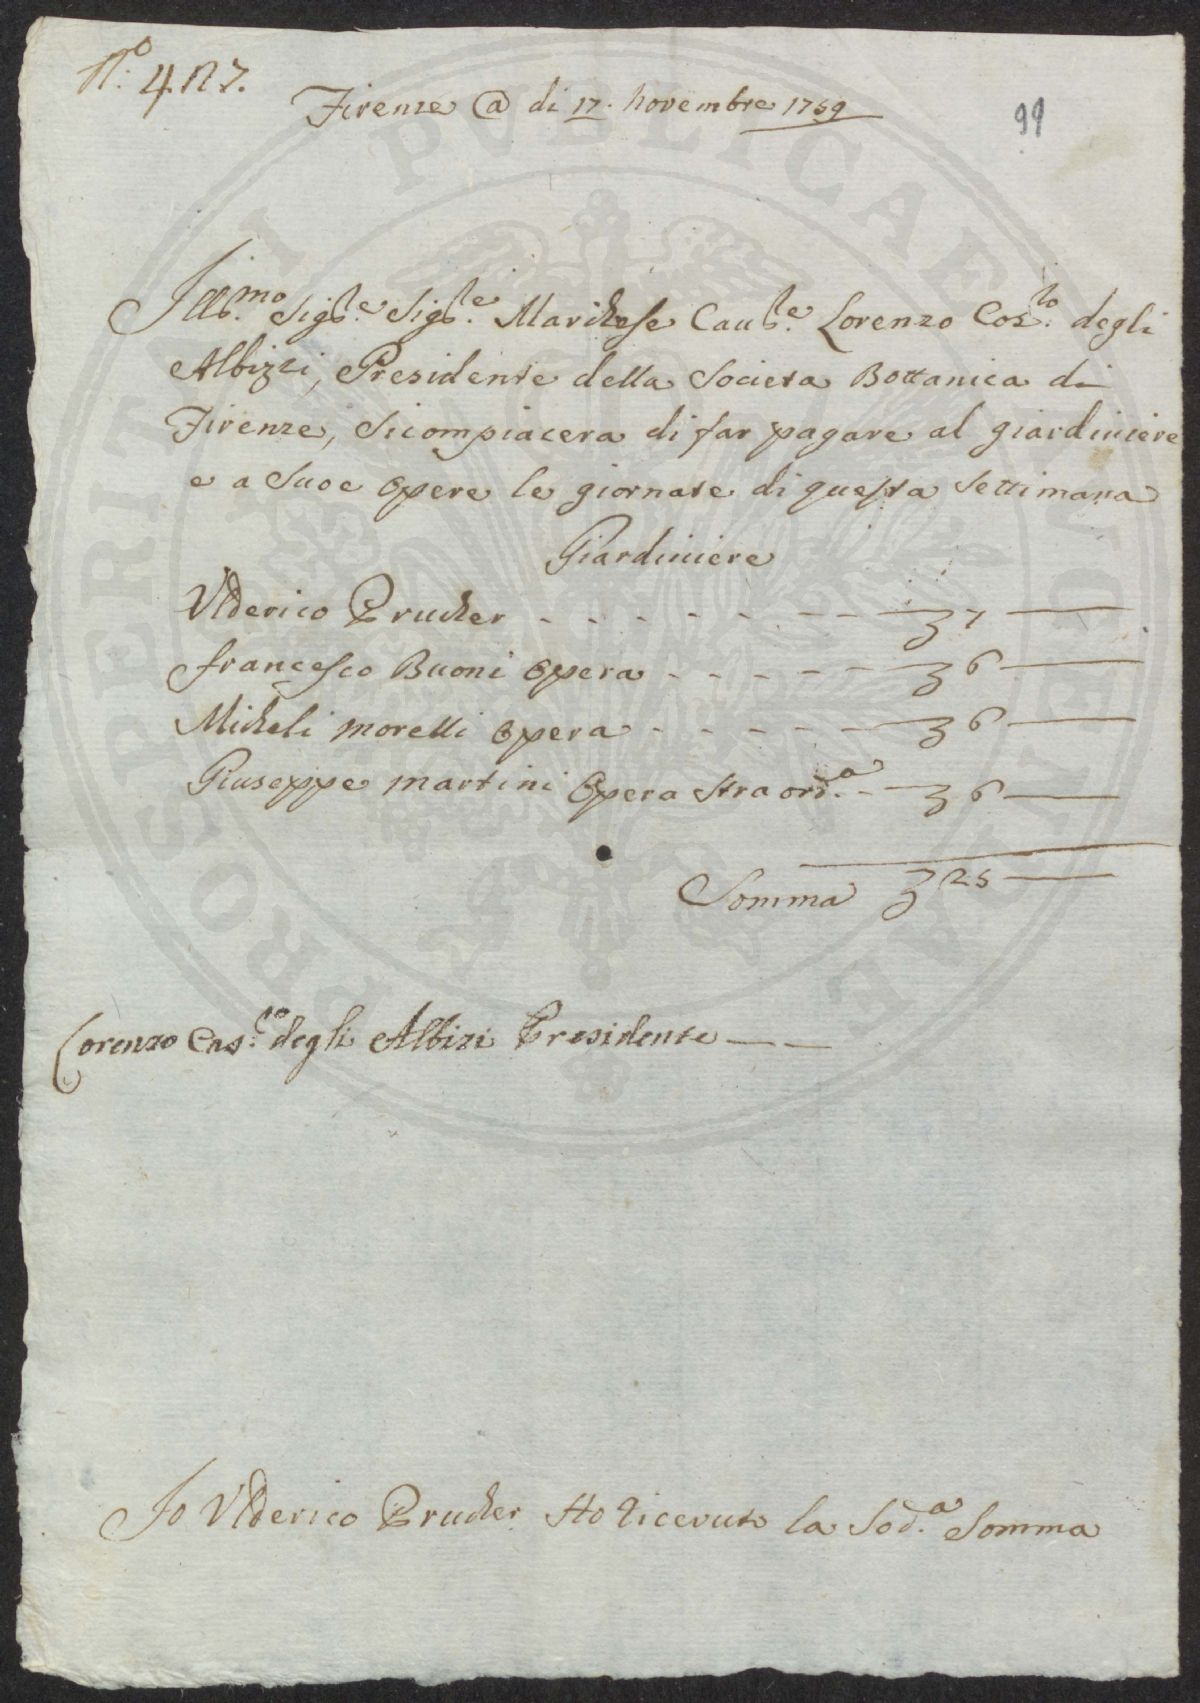 N.º 427.
Firenze @ di 17. novembre 1759
99
Ill.mo Sig.re Sig.re Marchese Cau.re Lorenzo Cos.lo degli
Albizzi, Presidente della Societa Bottanica di
Firenze, Sicompiacera di far pagare al giardiniere
e a Suoe Opere le giornate di questa Settimana
Giardiniere
Vlderico Prucker - - - - - - - - ʒ 7
francesco Buoni Opera - - - - - ʒ 6
Micheli morelli Opera - - - - - ʒ 6
Giuseppe martini Opera straord.a - - ʒ 6
Somma ʒ 25
Lorenzo Cos.lo degli Albizi Presidente
Io Vlderico Prucker Ho Riceuuto la Sod.a Somma
PROSPERITATI PVBLICAE